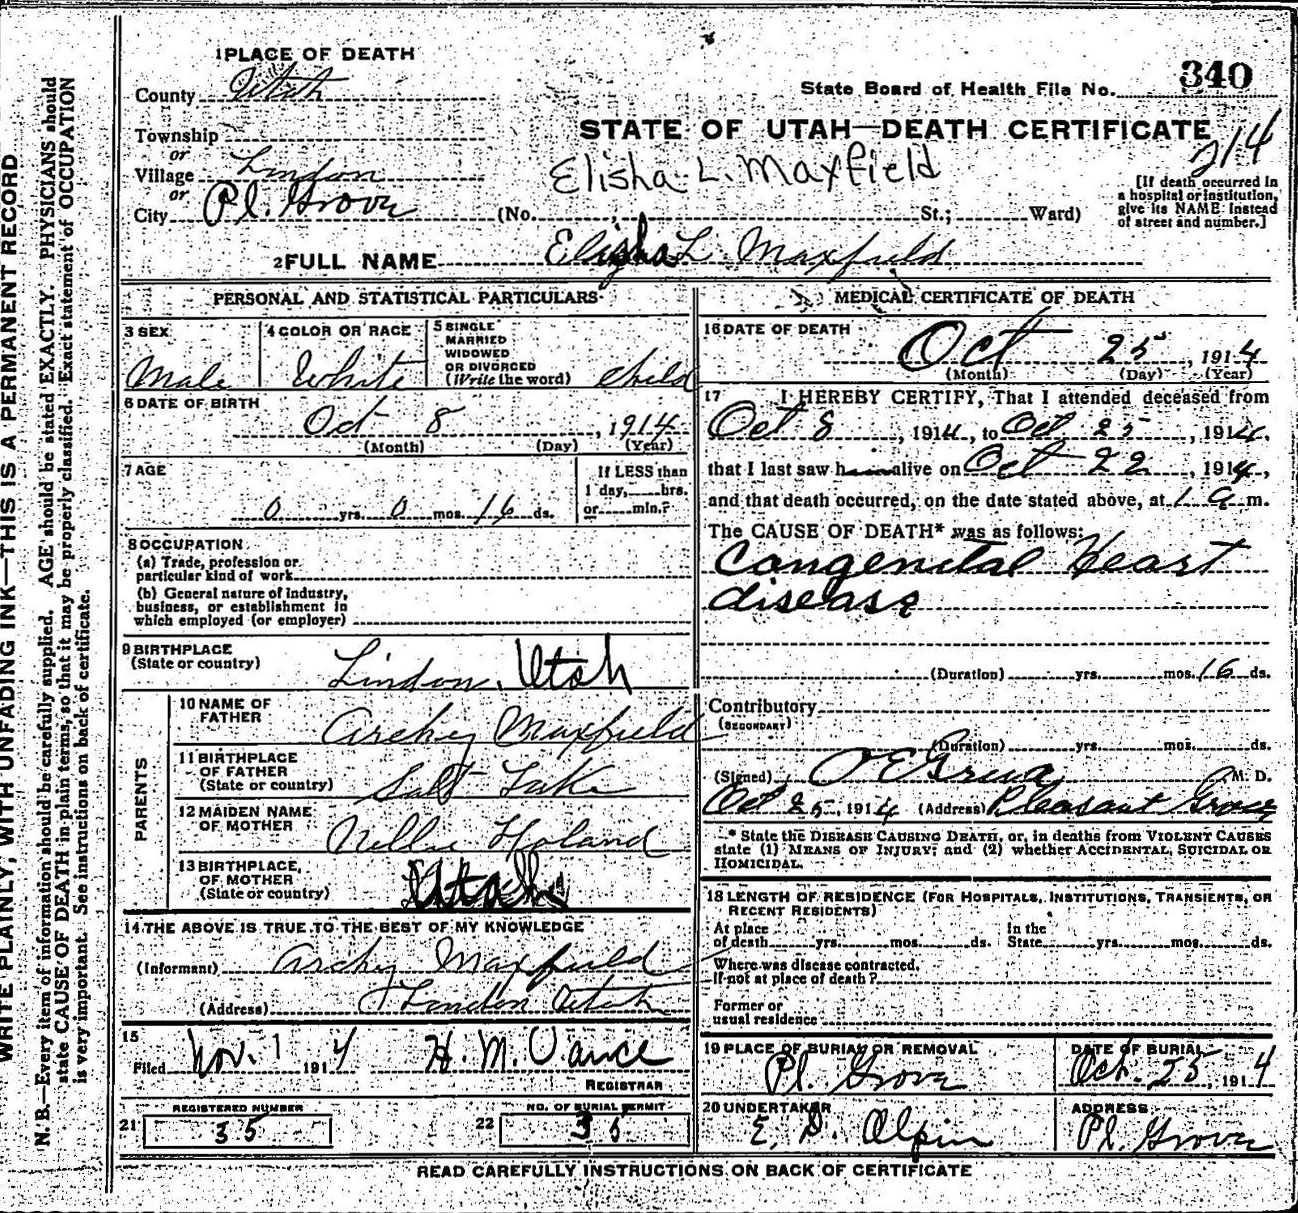 1 PLACE OF DEATH
County Utah
State Board of Health File No. 340
Township
STATE OF UTAH—DEATH CERTIFICATE
214
or
Village Lindon
Elisha L. Maxfield
or
City Pl. Grove (No. St.; Ward)
[If death occurred in
a hospital or institution,
give its NAME instead
of street and number.]
2 FULL NAME Elisha L. Maxfield
PERSONAL AND STATISTICAL PARTICULARS
3 SEX
Male
4 COLOR OR RACE
White
5 SINGLE
MARRIED
WIDOWED
OR DIVORCED
(Write the word) Child
6 DATE OF BIRTH
Oct 8, 1914
(Month) (Day) (Year)
7 AGE
0 yrs. 0 mos. 16 ds.
If LESS than
1 day, hrs.
or min.?
8 OCCUPATION
(a) Trade, profession or
particular kind of work
(b) General nature of industry,
business, or establishment in
which employed (or employer)
9 BIRTHPLACE
(State or country)
Lindon, Utah
PARENTS
10 NAME OF
FATHER
Archey Maxfield
11 BIRTHPLACE
OF FATHER
(State or country)
Salt Lake
12 MAIDEN NAME
OF MOTHER
Nellie Holand
13 BIRTHPLACE,
OF MOTHER
(State or country)
Utah
14 THE ABOVE IS TRUE TO THE BEST OF MY KNOWLEDGE
(Informant) Archey Maxfield
(Address) Lindon Utah
15
Filed Nov. 1 1914 H. M. Vance
REGISTRAR
REGISTERED NUMBER
21 35
NO. OF BURIAL PERMIT
22 35
MEDICAL CERTIFICATE OF DEATH
16 DATE OF DEATH
Oct 25, 1914
(Month) (Day) (Year)
17 I HEREBY CERTIFY, That I attended deceased from
Oct 8, 1914, to Oct 25, 1914,
that I last saw h alive on Oct 22, 1914,
and that death occurred, on the date stated above, at 1 a m.
The CAUSE OF DEATH* was as follows:
Congenital Heart
disease
(Duration) yrs. mos. 16 ds.
Contributory
(SECONDARY)
(Duration) yrs. mos. ds.
(Signed) O E Grua M. D.
Oct 25, 1914 (Address) Pleasant Grove
* State the DISEASE CAUSING DEATH, or, in deaths from VIOLENT CAUSES
state (1) MEANS OF INJURY; and (2) whether ACCIDENTAL, SUICIDAL OR
HOMICIDAL.
18 LENGTH OF RESIDENCE (FOR HOSPITALS, INSTITUTIONS, TRANSIENTS, OR
RECENT RESIDENTS)
At place
of death yrs. mos. ds.
In the
State yrs. mos. ds.
Where was disease contracted,
If not at place of death?
Former or
usual residence
19 PLACE OF BURIAL OR REMOVAL
Pl. Grove
DATE OF BURIAL
Oct. 25, 1914
20 UNDERTAKER
E. D. Olpin
ADDRESS
Pl. Grove
READ CAREFULLY INSTRUCTIONS ON BACK OF CERTIFICATE
WRITE PLAINLY, WITH UNFADING INK—THIS IS A PERMANENT RECORD
N. B.—Every item of information should be carefully supplied. AGE should be stated EXACTLY. PHYSICIANS should
state CAUSE OF DEATH in plain terms, so that it may be properly classified. Exact statement of OCCUPATION
is very important. See instructions on back of certificate.